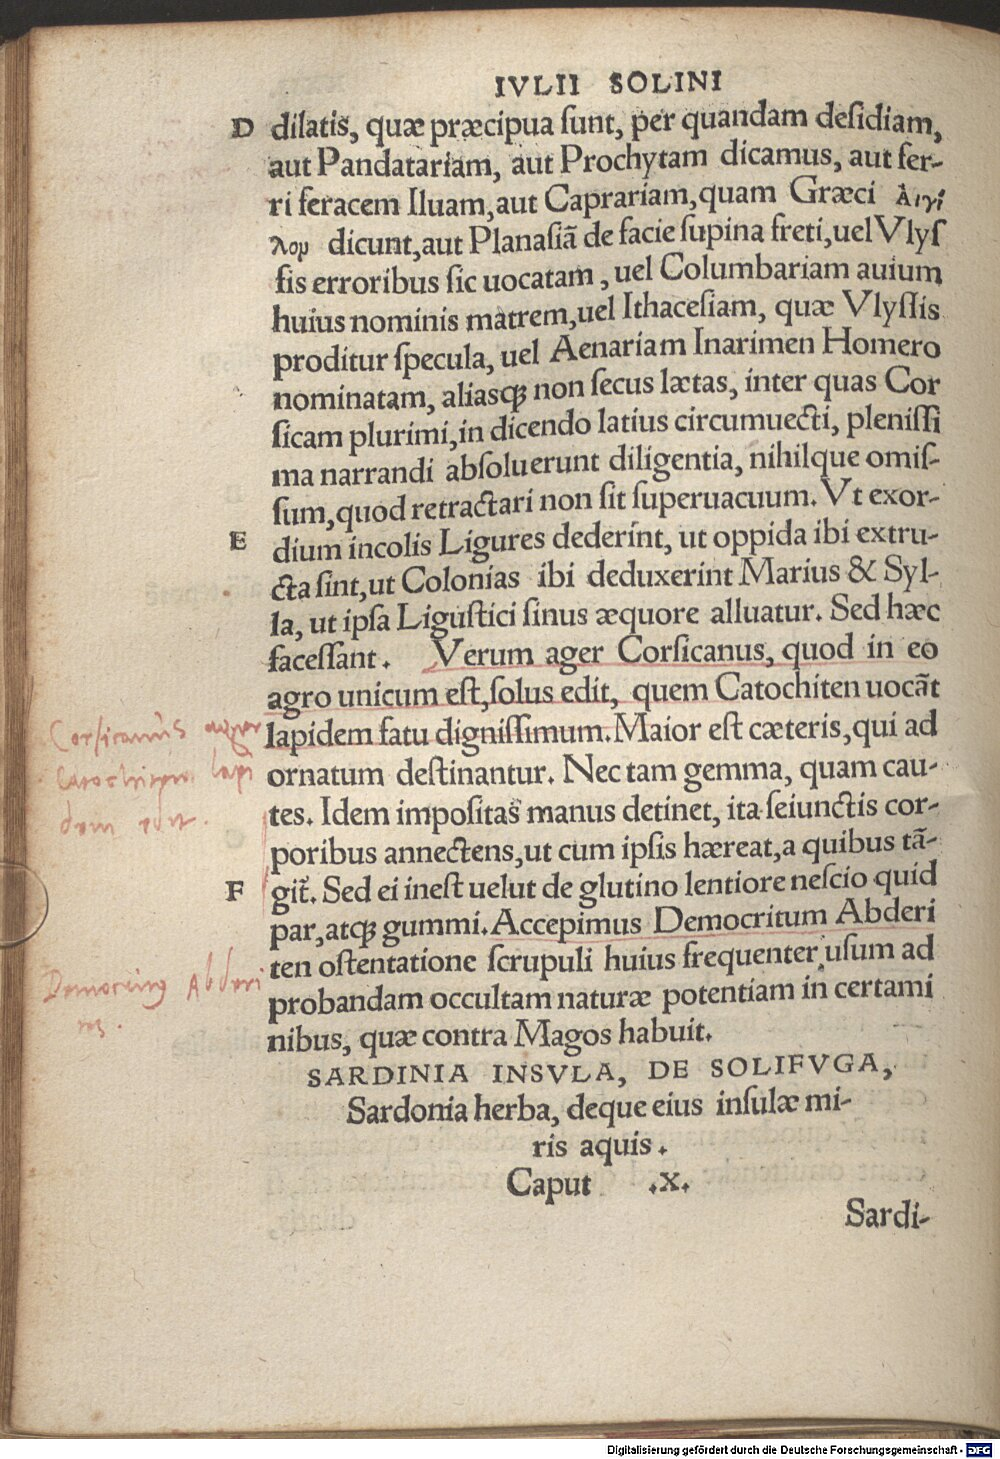 IVLII SOLINI
D dilatis, quæ præcipua ſunt, per quandam deſidiam,
aut Pandatariam, aut Prochytam dicamus, aut fer-
ri feracem Iluam, aut Caprariam, quam Græci Ἀιγί
λου dicunt, aut Planaſiã de facie ſupina freti, uel Vlyſ
ſis erroribus ſic uocatam, uel Columbariam auium
huius nominis matrem, uel Ithaceſiam, quæ Vlyſſis
proditur ſpecula, uel Aenariam Inarimen Homero
nominatam, aliasqꝫ non ſecus lætas, inter quas Cor
ſicam plurimi, in dicendo latius circumuecti, pleniſſi
ma narrandi abſoluerunt diligentia, nihilque omiſ-
ſum, quod retractari non ſit ſuperuacuum. Vt exor-
E dium incolis Ligures dederint, ut oppida ibi extru-
cta ſint, ut Colonias ibi deduxerint Marius & Syl-
la, ut ipſa Liguſtici ſinus æquore alluatur. Sed hæc
faceſſant. Verum ager Corſicanus, quod in eo
agro unicum eſt, ſolus edit, quem Catochiten uocãt
lapidem fatu digniſſimum. Maior eſt cæteris, qui ad
ornatum deſtinantur. Nec tam gemma, quam cau-
tes. Idem impoſitas manus detinet, ita ſeiunctis cor-
poribus annectens, ut cum ipſis hæreat, a quibus tã-
F git̃. Sed ei ineſt uelut de glutino lentiore neſcio quid
par, atqꝫ gummi. Accepimus Democritum Abderi
ten oſtentatione ſcrupuli huius frequenter uſum ad
probandam occultam naturæ potentiam in certami
nibus, quæ contra Magos habuit.
SARDINIA INSVLA, DE SOLIFVGA,
Sardonia herba, deque eius inſulæ mi-
ris aquis.
Caput .X.
Sardi-
Corsicanus ager
Catochiten lapi
dem edit.
Democritus Abderi
tes.
Digitalisierung gefördert durch die Deutsche Forschungsgemeinschaft - DFG